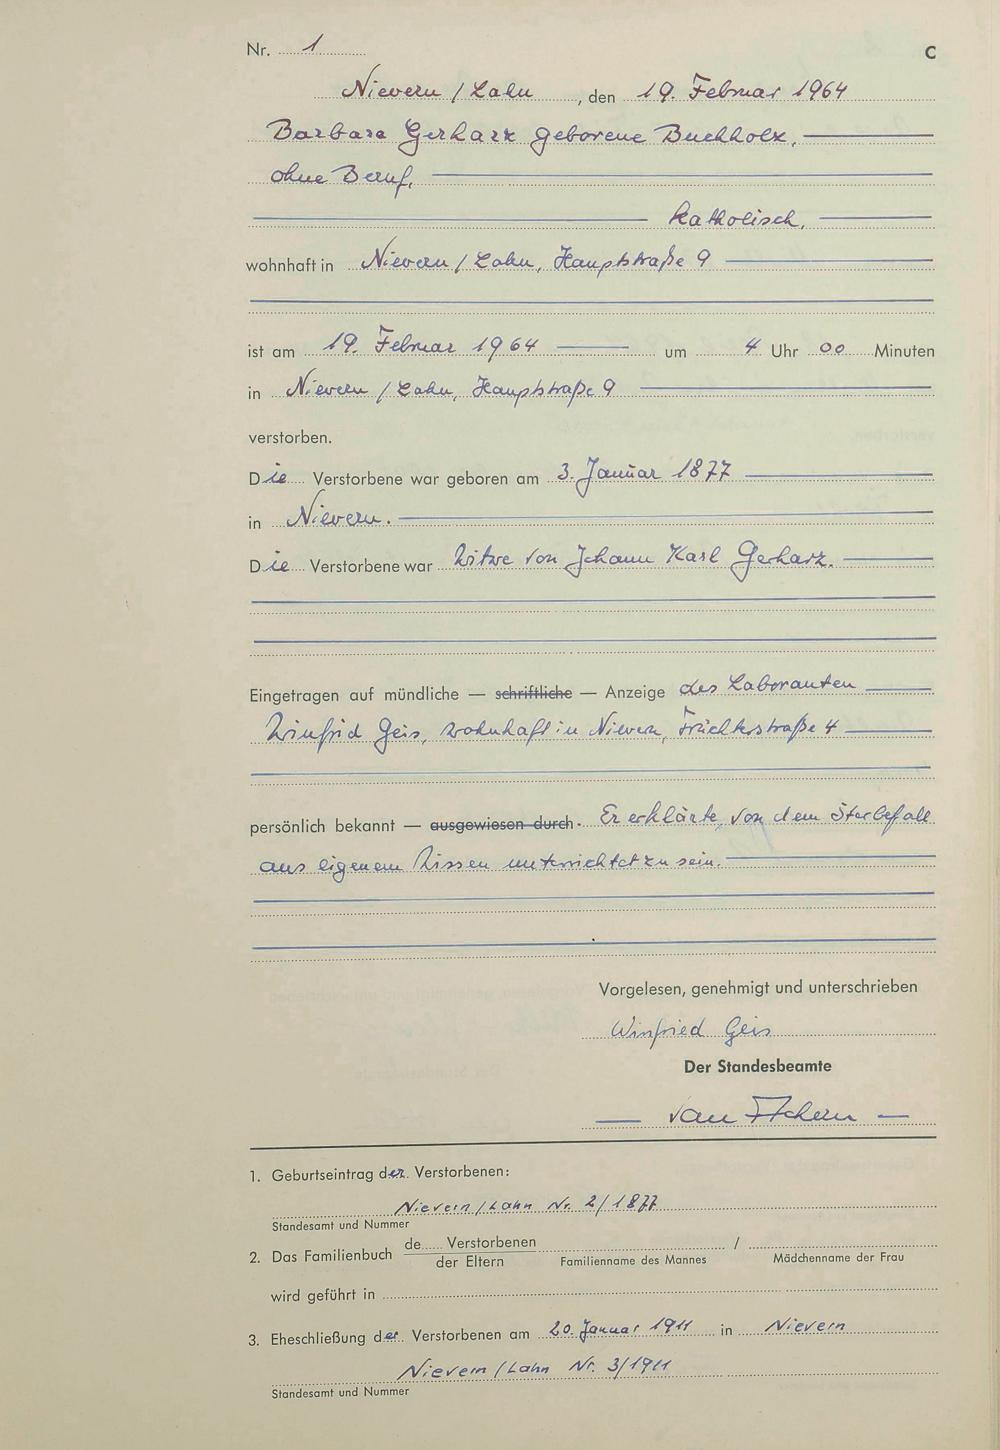 Nr. 1
C
Nievern / Lahn, den 19. Februar 1964
Barbara Gerharz geborene Buchholz,
ohne Beruf,
katholisch,
wohnhaft in Nievern / Lahn, Hauptstraße 9
ist am 19. Februar 1964 um 4 Uhr 00 Minuten
in Nievern / Lahn, Hauptstraße 9
verstorben.
Die Verstorbene war geboren am 3. Januar 1877
in Nievern.
Die Verstorbene war Witwe von Johann Karl Gerharz.
Eingetragen auf mündliche — schriftliche — Anzeige des Laboranten
Winfrid Geis, wohnhaft in Nievern, Früchterstraße 4
persönlich bekannt — ausgewiesen durch. Er erklärte, von dem Sterbefall
aus eigenem Wissen unterrichtet zu sein.
Vorgelesen, genehmigt und unterschrieben
Winfried Geis
Der Standesbeamte
— van —
1. Geburtseintrag der Verstorbenen:
Nievern / Lahn Nr. 2/1877
Standesamt und Nummer
2. Das Familienbuch de Verstorbenen /
der Eltern Familienname des Mannes Mädchenname der Frau
wird geführt in
3. Eheschließung der Verstorbenen am 20. Januar 1911 in Nievern
Nievern / Lahn Nr. 3/1911
Standesamt und Nummer